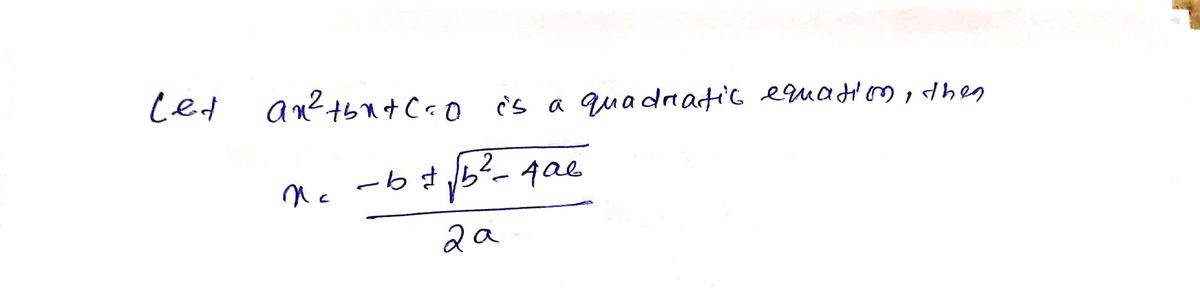 Let ax²+bx+c=0 is a quadratic equation, then
x = (-b ± √(b²-4ac)) / 2a